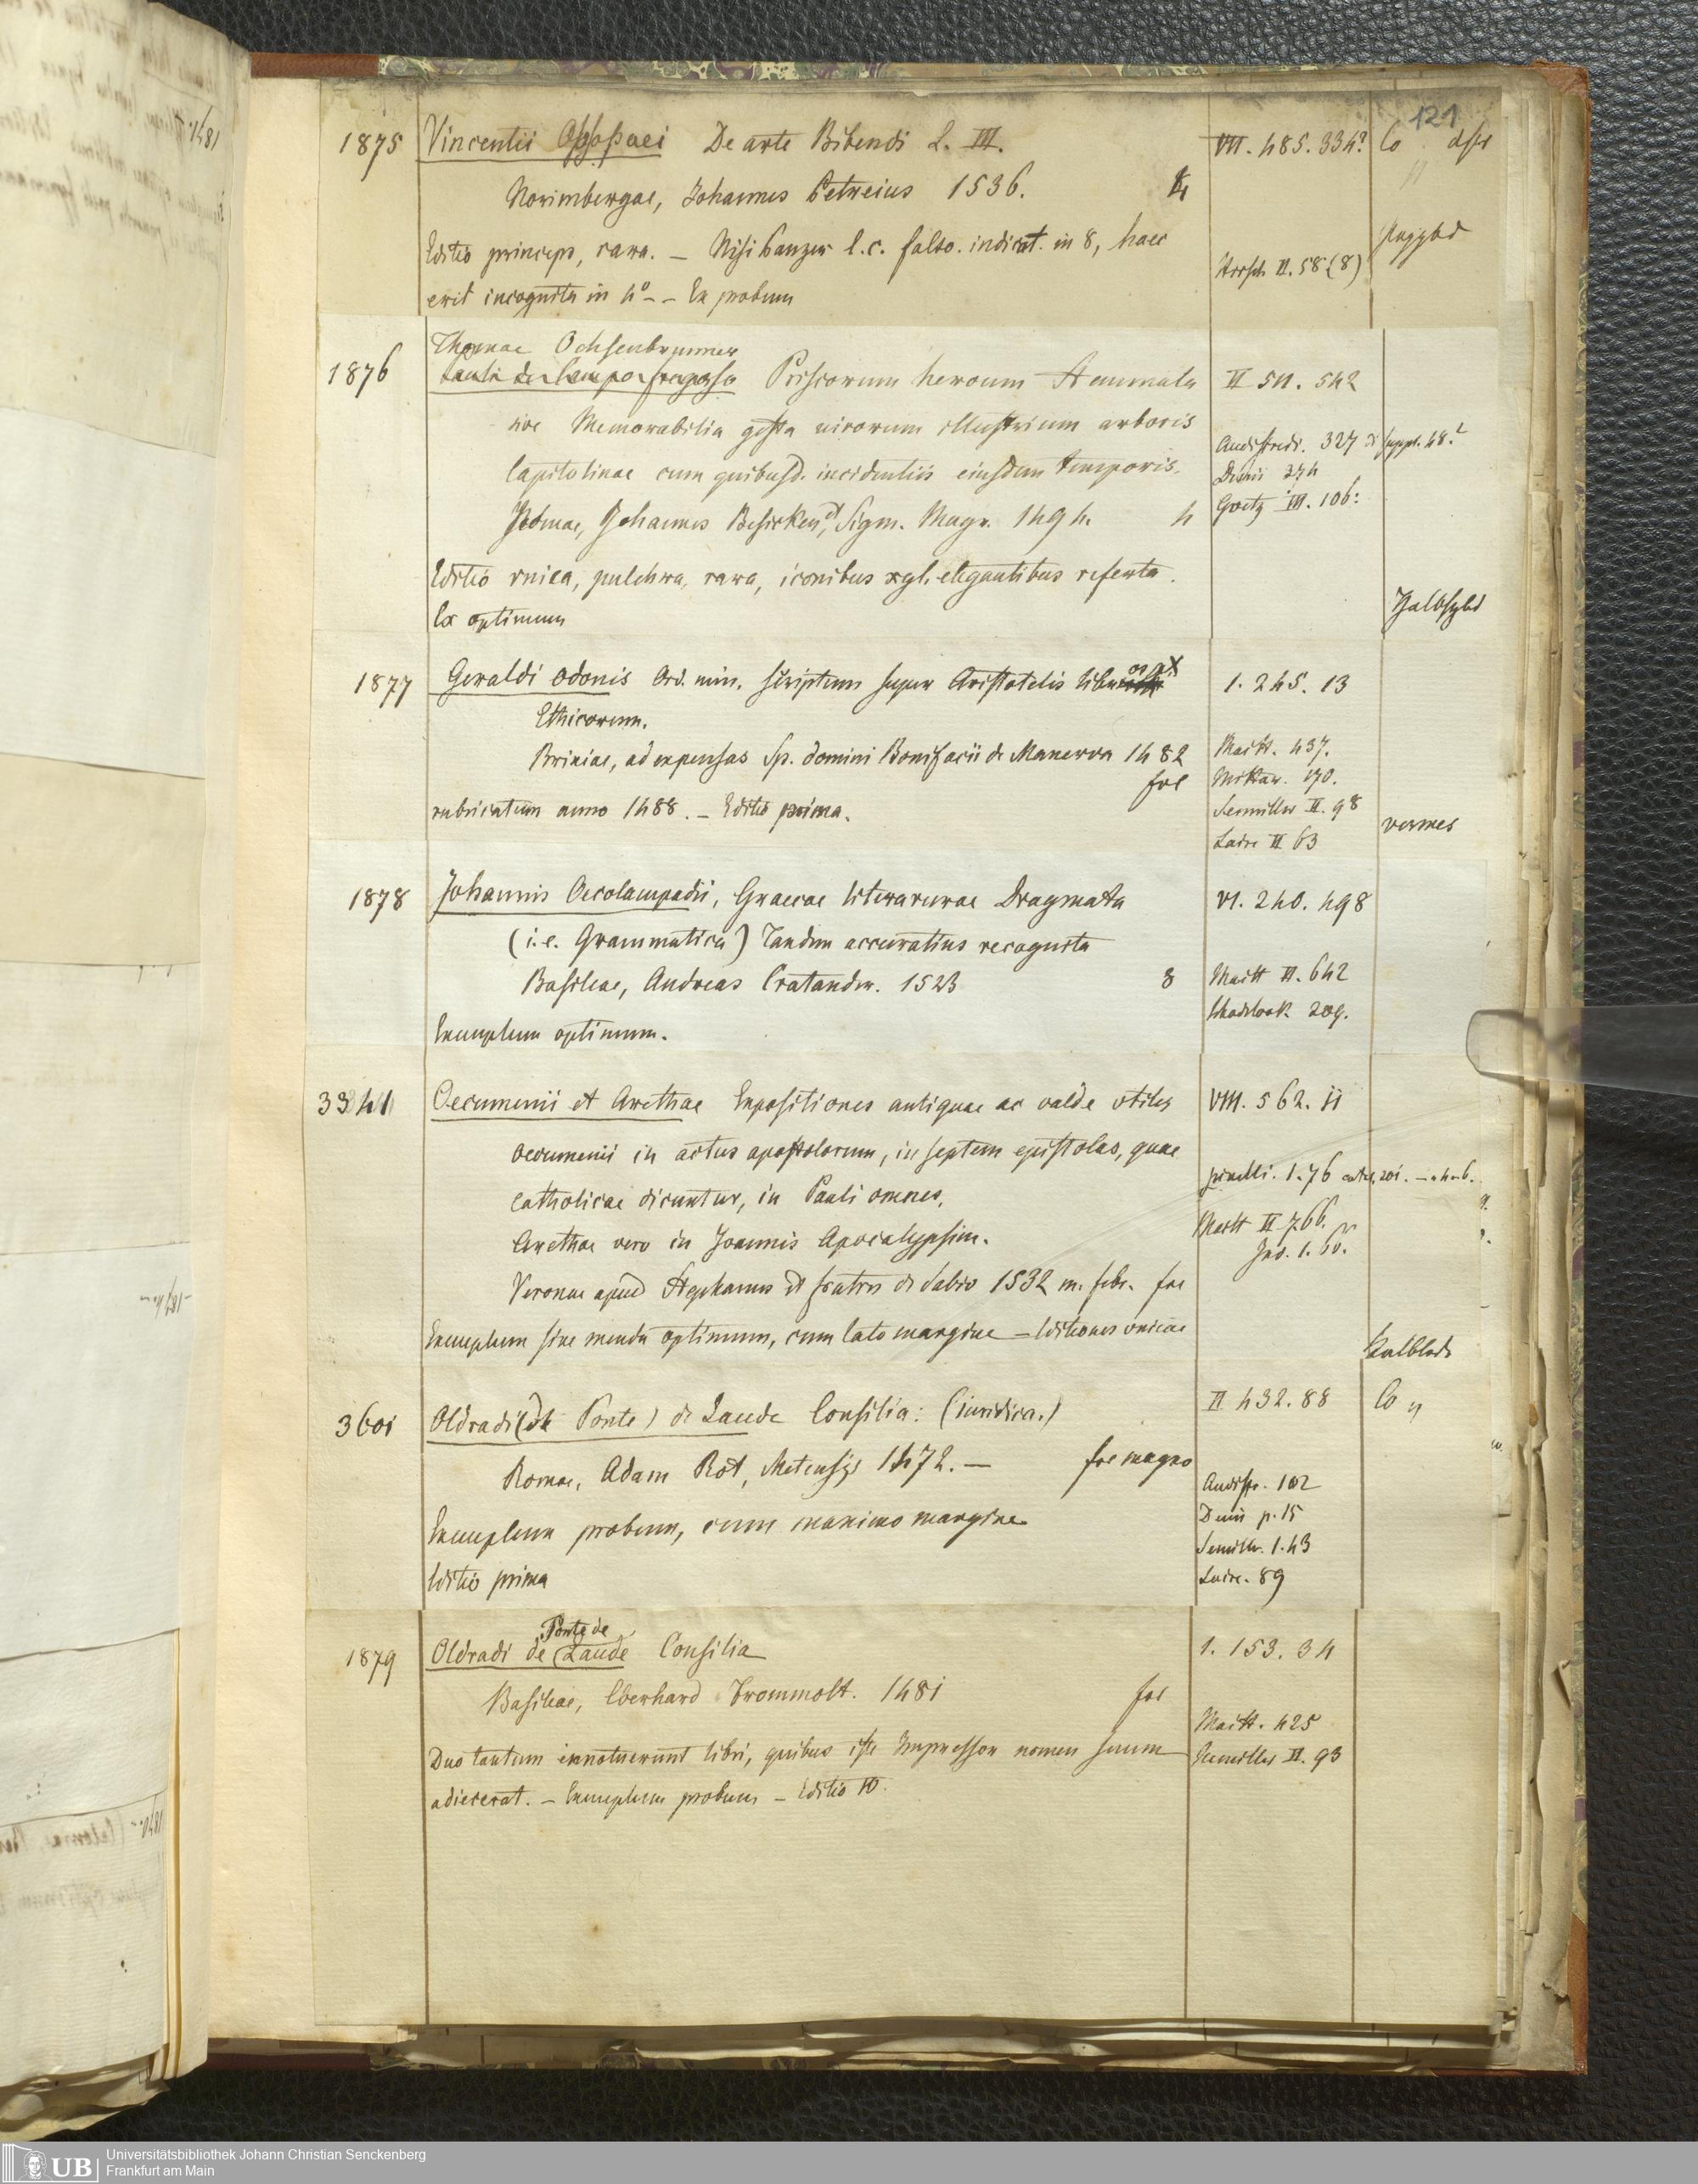 121
1875 Vincentii Opsopaei De arte Bibendi L. III. VII. 485. 334? Co
Norimbergae, Johannes Petreius 1536. 4
Editio princeps, rara. — Nisi Panzer l.c. falso indicat in 8, haec Hirsch II. 58 (8) Pappbd
erit incognita in 4° - - Ex probum
Thomae Ochsenbrunner
1876 Priscorum heroum Stemmata II 511. 542
sive Memorabilia gesta virorum illustrium arboris
Capitolinae cum quibusd. incidentiis eiusdem temporis. Audifredi. 327 suppl. 48.
Romae, Johannes Besicken, et Sigm. Mayr. 1494. 4 Denis 374
Goetz III. 106.
Editio vnica, pulchra, rara, iconibus xyl. elegantibus referta.
Ex optimum Halbfzbd
1877 Geraldi Odonis Ord. min. scriptum super Aristotelis libros X 1. 245. 13
Ethicorum.
Brixiae, ad expensas Sp. domini Bonifacii de Manerva 1482 Maitt. 437.
fol
rubricatum anno 1488. — Editio prima. Semiller II. 98
Laire II 63 vermes
1878 Johannis Oecolampadii, Graecae literaturae Dragmata VI. 240. 498
(i.e. Grammatica) Tandem accuratius recognita
Basileae, Andreas Cratander. 1523 8 Maitt II. 642
209.
Exemplum optimum.
3341 Oecumenii et Arethae Expositiones antiquae ac valde vtiles VIII. 562. 11
Oecumenii in actus apostolorum, in septem epistolas, quae
catholicae dicuntur, in Pauli omnes. pinelli. 1. 76
Arethae vero in Joannis Apocalypsim. Maitt II 766.
Ind. 1. 60.
Veronae apud Stephanus et fratres de Sabio 1532 m. febr. fol
Exemplum sine menda optimum, cum lato margine — Editiones vnicae
3601 Oldradi (de Ponte) de Laude Consilia: (iuridica.) II 432. 88 Co
Romae, Adam Rot, Metensis 1472. — fol magno
Audifr. 102
Exemplum probum, cum maximo margine Denis p. 15
Semiller. 1. 43
Editio prima Laire. 89
Ponte de
1879 Oldradi de Laude Consilia 1. 153. 34
Basileae, Eberhard Frommolt. 1481 fol
Maitt. 425
Duo tantum innotuerunt libri, quibus iste Impressor nomen suum Semiller II. 93
adiecerat. — Exemplum probum — Editio IV.
UB Universitätsbibliothek Johann Christian Senckenberg
Frankfurt am Main